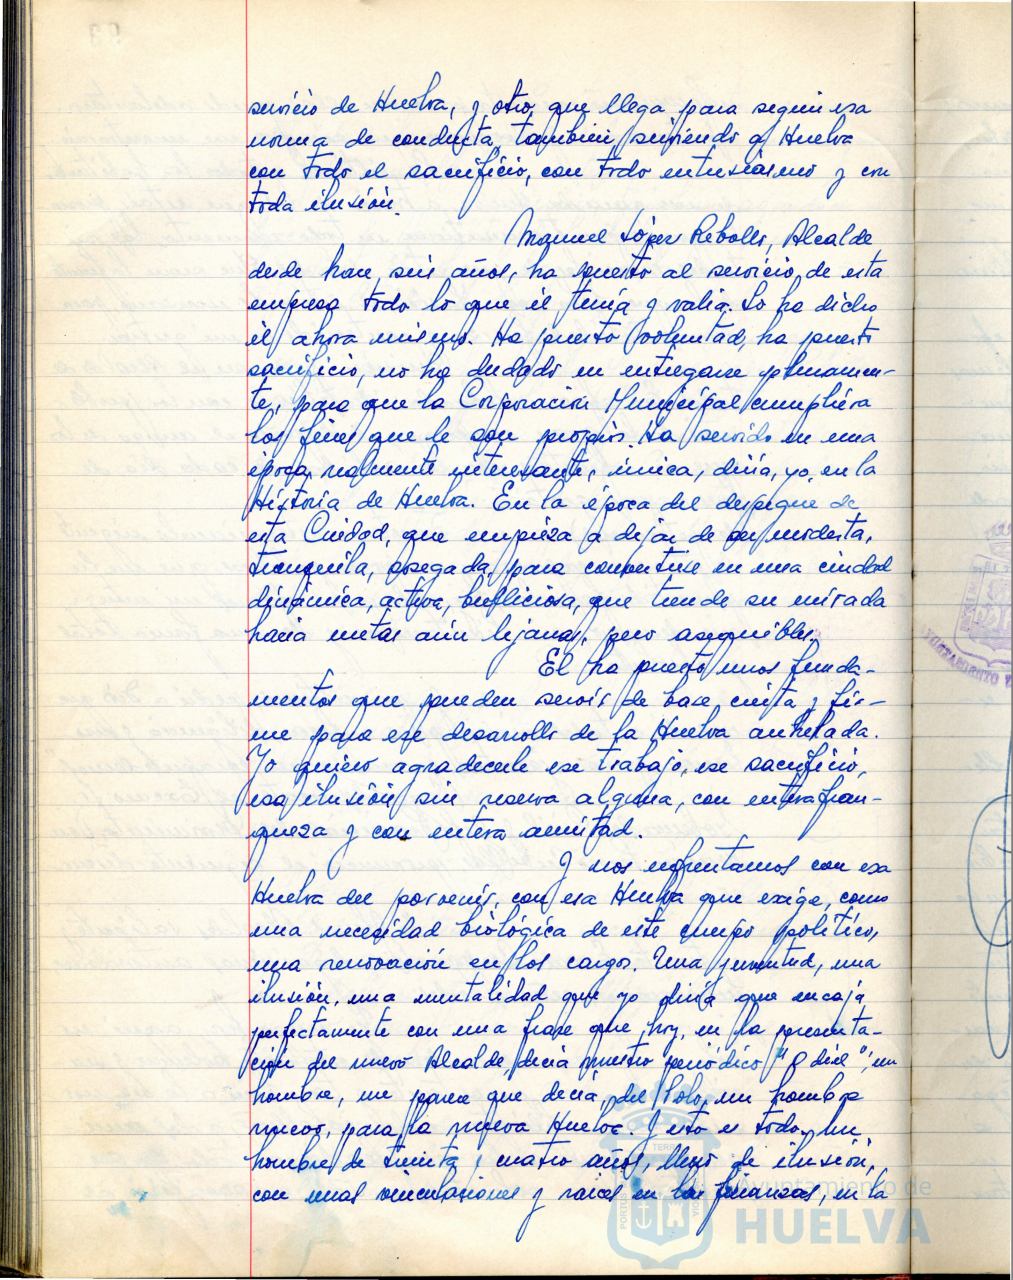 servicio de Huelva, y otro, que llega para seguir esa
norma de conducta, también, sirviendo a Huelva
con todo el sacrificio, con todo entusiasmo y con
toda ilusión.
Manuel López Rebollo, Alcalde,
desde hace seis años, ha puesto al servicio de esta
empresa todo lo que él tenía y valía. Lo ha dicho
él ahora mismo. Ha puesto voluntad, ha puesto
sacrificio, no ha dudado en entregarse plenamen-
te, para que la Corporación Municipal cumpliera
los fines que le son propios. Ha servido en una
época realmente interesante, única, diría, yo, en la
Historia de Huelva. En la época del despegue de
esta Ciudad, que empieza a dejar de ser modesta,
tranquila, sosegada, para convertirse en una ciudad
dinámica, activa, bulliciosa, que tiende su mirada
hacia metas aún lejanas, pero asequibles.
El ha puesto unos funda-
mentos que pueden servir de base cierta y fir-
me para ese desarrollo de la Huelva anhelada.
Yo quiero agradecerle ese trabajo, ese sacrificio,
esa ilusión sin reserva alguna, con entera fran-
queza y con entera amistad.
Y nos enfrentamos con esa
Huelva del porvenir, con esa Huelva que exige, como
una necesidad biológica de este cuerpo político,
una renovación en los cargos. Una juventud, una
ilusión, una mentalidad que yo diría que encaja
perfectamente con una frase que, hoy, en la presenta-
ción del nuevo Alcalde, decía nuestro periódico "Odiel"; un
hombre, me parece que decía, del Polo, un hombre
nuevo, para la nueva Huelva. Y esto es todo, un
hombre de treinta y cuatro años, lleno de ilusión,
con unas vinculaciones y raíces en las finanzas, en la
Ayuntamiento de
HUELVA